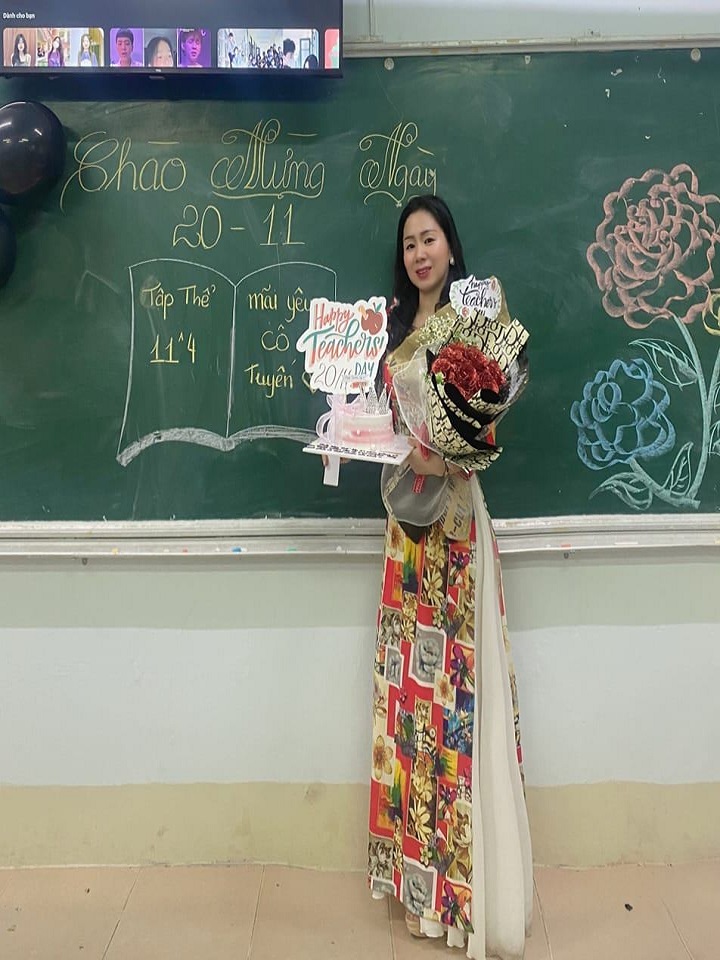 Dành cho bạn
Chào Mừng Ngày
20 - 11
Tập Thể
11^4
mãi yêu
cô
Tuyến
Happy
Teachers'
DAY
20/11
happy
teachers